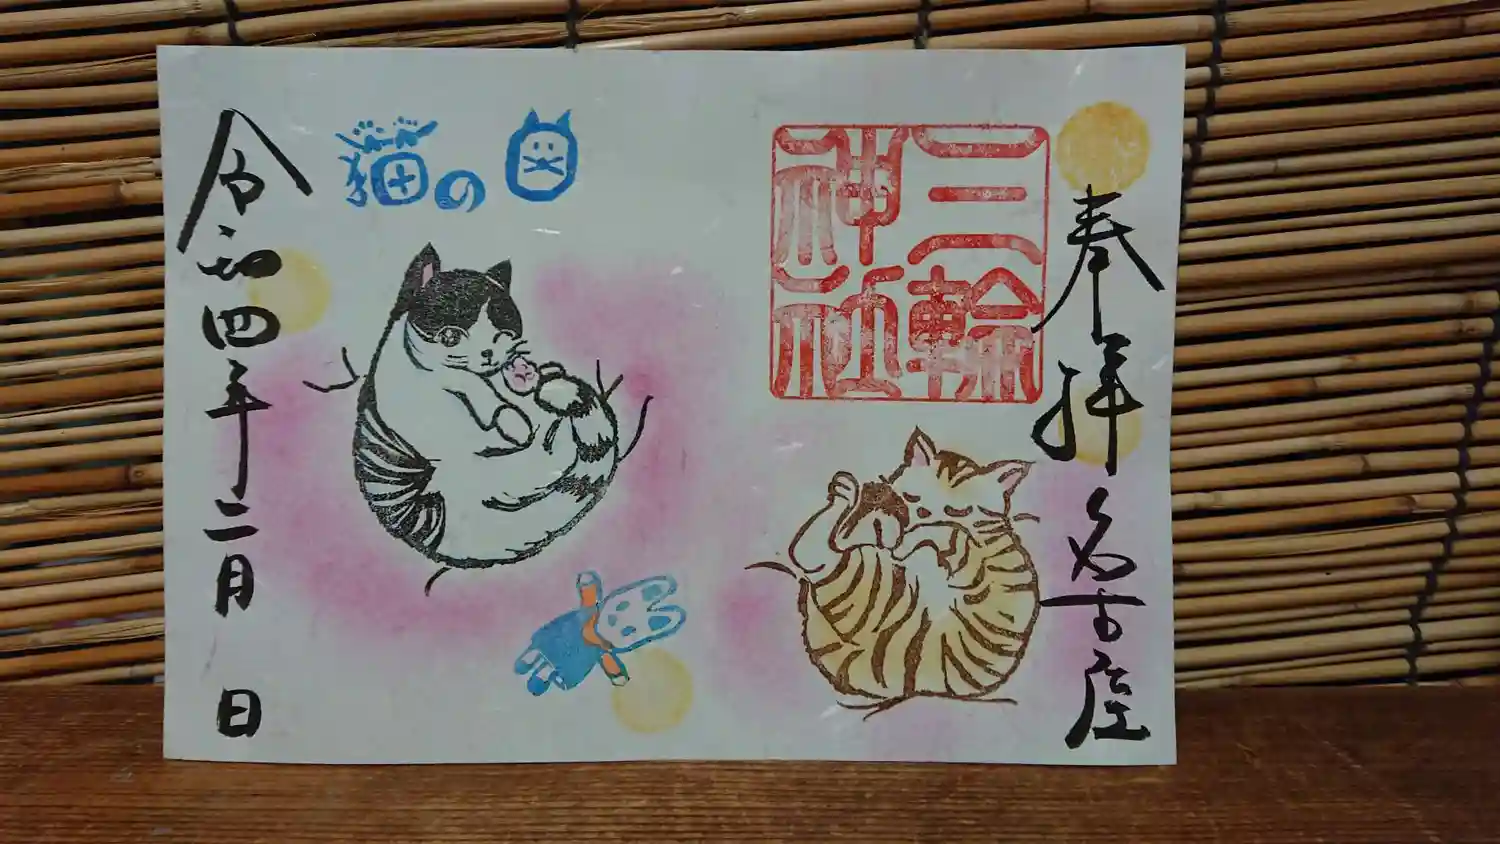 奉拝
名古屋
三輪
神社
猫の日
令和四年二月 日